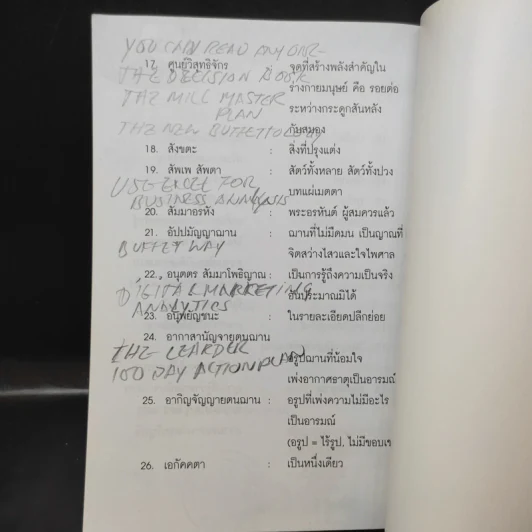 YOU CAN READ ANYONE
17. ศูนย์วิสุทธิจักร : จุดที่สร้างพลังสำคัญใน
THE DECISION BOOK
ร่างกายมนุษย์ คือ รอยต่อ
THE MILL MASTER
ระหว่างกระดูกสันหลัง
PLAN
กับสมอง
THE NEW BUFFETTOLOGY
18. สังขตะ : สิ่งที่ปรุงแต่ง
19. สัพเพ สัพตา : สัตว์ทั้งหลาย สัตว์ทั้งปวง
USE EXCEL FOR
บทแผ่เมตตา
BUSINESS ANALYSIS
20. สัมมาอรหัง : พระอรหันต์ ผู้สมควรแล้ว
21. อัปปมัญญาฌาน : ฌานที่ไม่มีดมน เป็นญาณที่
BUFFET WAY
จิตสว่างไสวและใจไพศาล
22. อนุตตร สัมมาโพธิญาณ : เป็นการรู้ถึงความเป็นจริง
DIGITAL MARKETING
อันประมาณมิได้
ANALYTICS
23. อนุพยัญชนะ : ในรายละเอียดปลีกย่อย
24. อากาสานัญจายตนฌาน
THE LEARDER
อรูปฌานที่น้อมใจ
100 DAY ACTION PLAN
เพ่งอากาศธาตุเป็นอารมณ์
25. อากิญจัญญายตนฌาน : อรูปที่เพ่งความไม่มีอะไร
เป็นอารมณ์
(อรูป = ไร้รูป, ไม่มีขอบเข
26. เอกัคคตา : เป็นหนึ่งเดียว